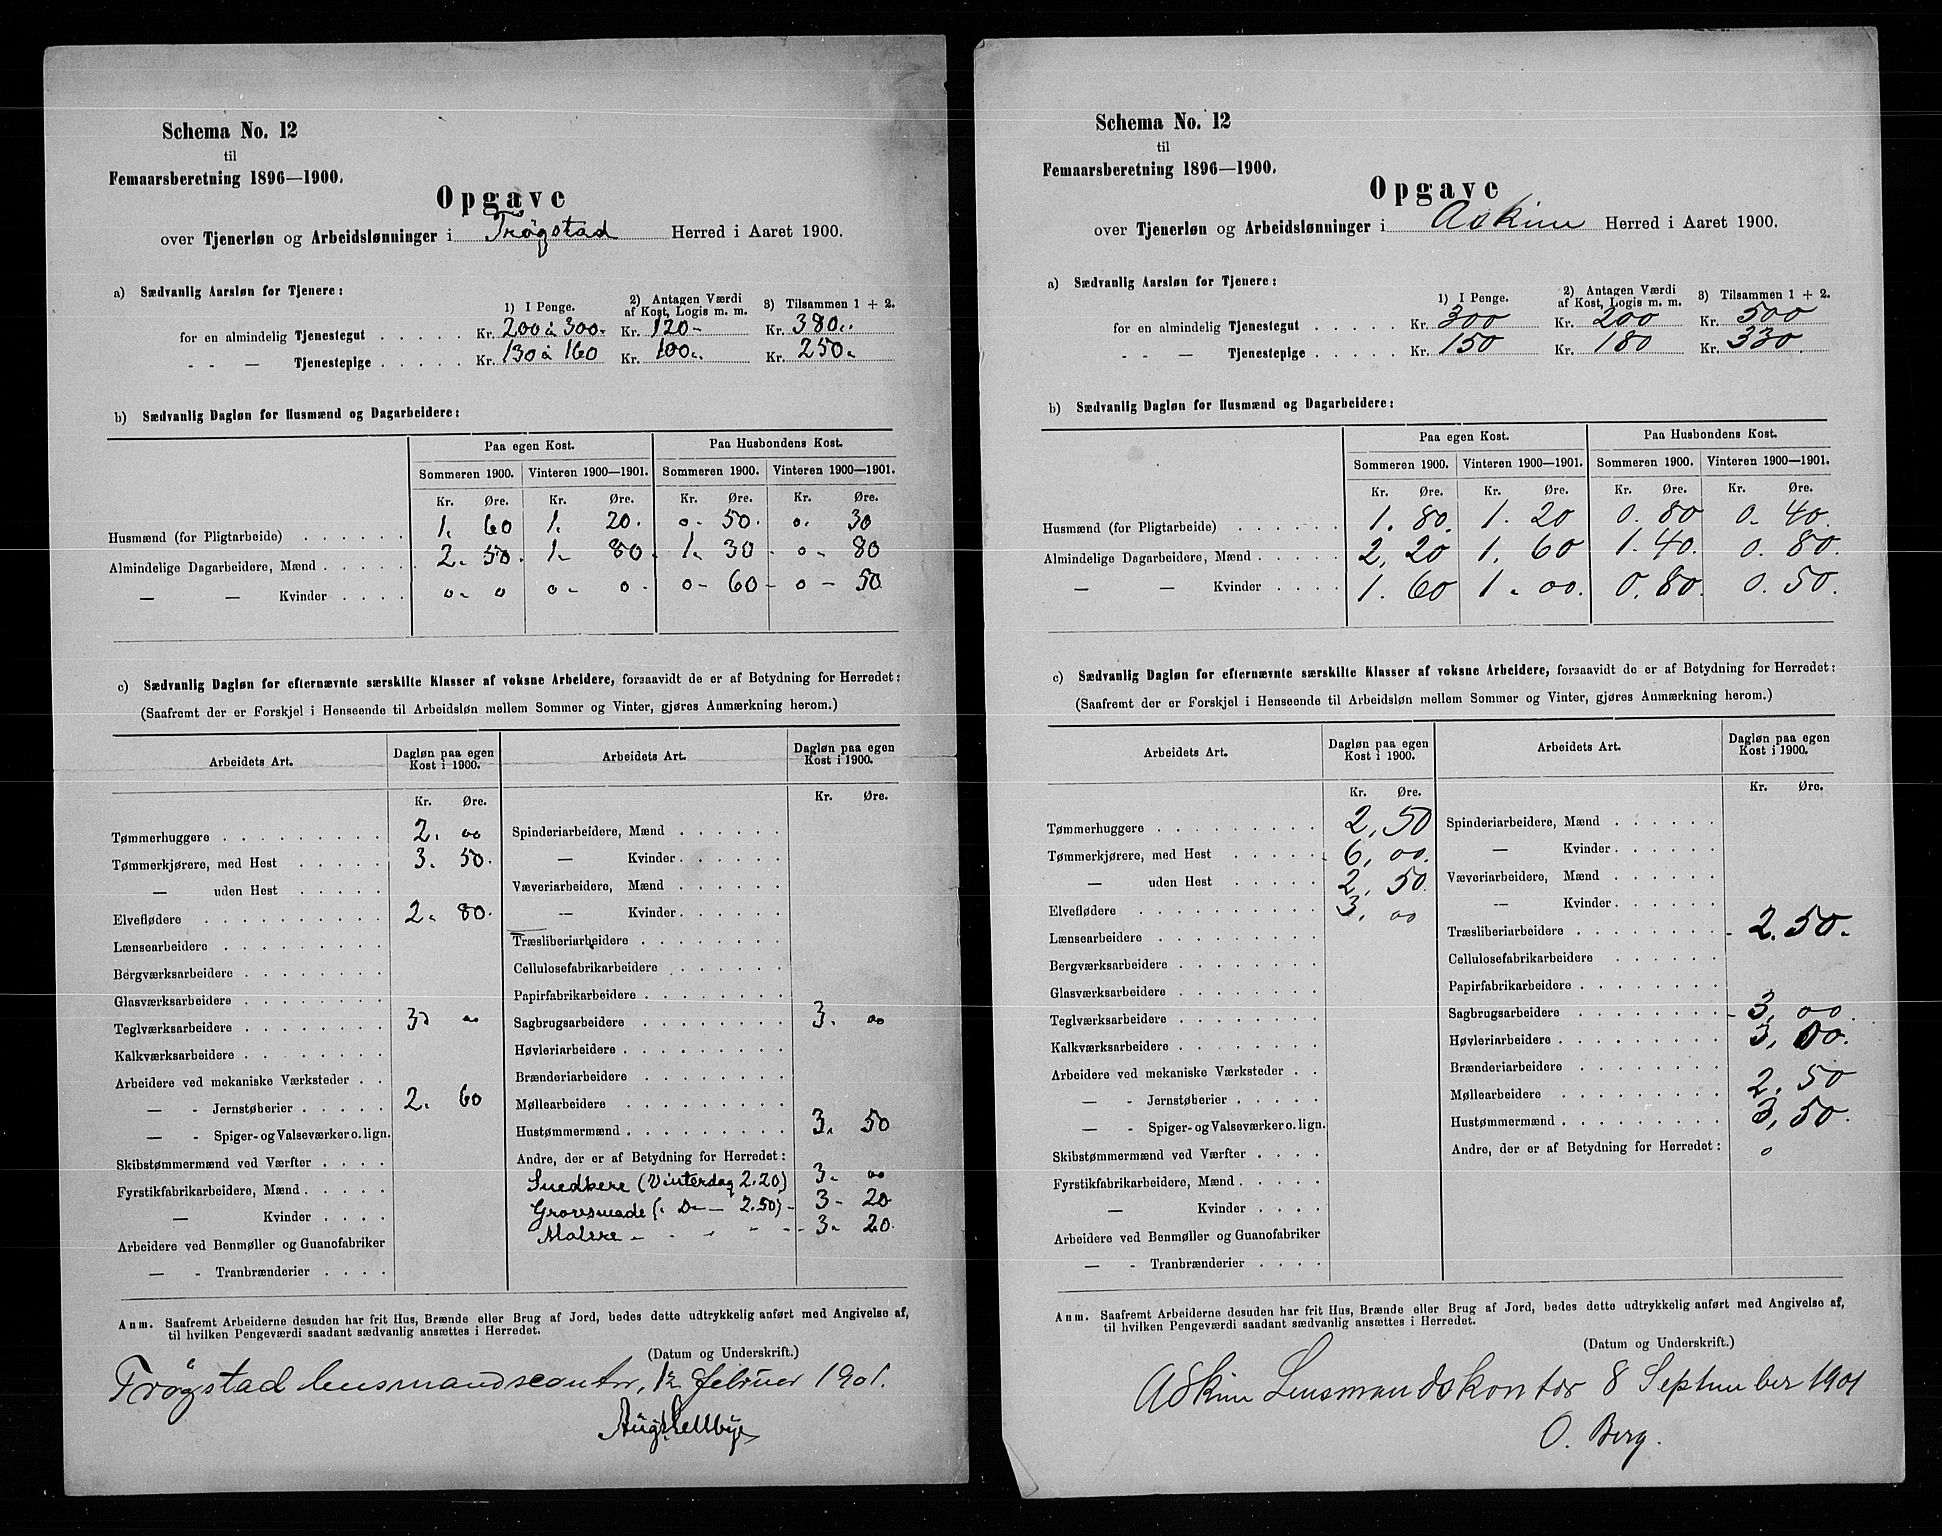 Schema No. 12
til
Femaarsberetning 1896—1900.
Opgave
over Tjenerløn og Arbeidslønninger i Trøgstad Herred i Aaret 1900.
a) Sædvanlig Aarsløn for Tjenere:
1) I Penge. 2) Antagen Værdi af Kost, Logis m. m. 3) Tilsammen 1 + 2.
for en almindelig Tjenestegut . . . . . Kr. 200 à 300- Kr. 120- Kr. 380..
- - — Tjenestepige . . . . . Kr. 130 à 160 Kr. 100.. Kr. 250.
b) Sædvanlig Dagløn for Husmænd og Dagarbeidere:
Paa egen Kost. Paa Husbondens Kost.
Sommeren 1900. Vinteren 1900—1901. Sommeren 1900. Vinteren 1900—1901.
Kr. Øre. Kr. Øre. Kr. Øre. Kr. Øre.
Husmænd (for Pligtarbeide) . . . . . . 1. 60 1. 20. 0- 50. 0. 30
Almindelige Dagarbeidere, Mænd . . . . . 2. 50. 1- 80. 1. 30 0- 80
— — Kvinder . . . . 0- 0 0- 0. 0- 60- 0- 50
c) Sædvanlig Dagløn for efternævnte særskilte Klasser af voksne Arbeidere, forsaavidt de er af Betydning for Herredet:
(Saafremt der er Forskjel i Henseende til Arbeidsløn mellem Sommer og Vinter, gjøres Anmærkning herom.)
Arbeidets Art. Dagløn paa egen Kost i 1900.
Kr. Øre.
Tømmerhuggere 2. 00
Tømmerkjørere, med Hest 3. 50.
— uden Hest
Elveflødere 2. 80.
Lænsearbeidere
Bergværksarbeidere
Glasværksarbeidere
Teglværksarbeidere 3 00
Kalkværksarbeidere
Arbeidere ved mekaniske Værksteder
— - Jernstøberier 2. 60
— - Spiger- og Valseværker o. lign.
Skibstømmermænd ved Værfter
Fyrstikfabrikarbeidere, Mænd
— Kvinder
Arbeidere ved Benmøller og Guanofabriker
— - Tranbrænderier
Arbeidets Art. Dagløn paa egen Kost i 1900.
Kr. Øre.
Spinderiarbeidere, Mænd
— Kvinder
Væveriarbeidere, Mænd
— Kvinder
Træsliberiarbeidere
Cellulosefabrikarbeidere
Papirfabrikarbeidere
Sagbrugsarbeidere 3. 00
Høvleriarbeidere
Brænderiarbeidere
Møllearbeidere
Hustømmermænd 3. 50
Andre, der er af Betydning for Herredet:
Snedkere (Vinterdag 2.20) 3. 00
Grovsmede (" D- — 2.50) - 3- 20
Malere - " " " - - 3. 20.
Anm. Saafremt Arbeiderne desuden har frit Hus, Brænde eller Brug af Jord, bedes dette udtrykkelig anført med Angivelse af,
til hvilken Pengeværdi saadant sædvanlig ansættes i Herredet.
(Datum og Underskrift.)
Trøgstad lensmandscontor, 12 februer 1901.
Aug.
Schema No. 12
til
Femaarsberetning 1896—1900.
Opgave
over Tjenerløn og Arbeidslønninger i Askim Herred i Aaret 1900.
a) Sædvanlig Aarsløn for Tjenere:
1) I Penge. 2) Antagen Værdi af Kost, Logis m. m. 3) Tilsammen 1 + 2.
for en almindelig Tjenestegut . . . . . Kr. 300 Kr. 200 Kr. 500
- - — Tjenestepige . . . . . Kr. 150 Kr. 180 Kr. 330.
b) Sædvanlig Dagløn for Husmænd og Dagarbeidere:
Paa egen Kost. Paa Husbondens Kost.
Sommeren 1900. Vinteren 1900—1901. Sommeren 1900. Vinteren 1900—1901.
Kr. Øre. Kr. Øre. Kr. Øre. Kr. Øre.
Husmænd (for Pligtarbeide) . . . . . . 1. 80. 1. 20 0. 80 0. 40.
Almindelige Dagarbeidere, Mænd . . . . . 2, 20 1. 60 1. 40. 0. 80.
— — Kvinder . . . . 1. 60 1. 00. 0. 80. 0. 50.
c) Sædvanlig Dagløn for efternævnte særskilte Klasser af voksne Arbeidere, forsaavidt de er af Betydning for Herredet:
(Saafremt der er Forskjel i Henseende til Arbeidsløn mellem Sommer og Vinter, gjøres Anmærkning herom.)
Arbeidets Art. Dagløn paa egen Kost i 1900.
Kr. Øre.
Tømmerhuggere 2, 50
Tømmerkjørere, med Hest 6, 00.
— uden Hest 2, 50.
Elveflødere 3, 00
Lænsearbeidere
Bergværksarbeidere
Glasværksarbeidere
Teglværksarbeidere
Kalkværksarbeidere
Arbeidere ved mekaniske Værksteder
— - Jernstøberier
— - Spiger- og Valseværker o. lign.
Skibstømmermænd ved Værfter
Fyrstikfabrikarbeidere, Mænd
— Kvinder
Arbeidere ved Benmøller og Guanofabriker
— - Tranbrænderier
Arbeidets Art. Dagløn paa egen Kost i 1900.
Kr. Øre.
Spinderiarbeidere, Mænd
— Kvinder
Væveriarbeidere, Mænd
— Kvinder
Træsliberiarbeidere 2. 50.
Cellulosefabrikarbeidere
Papirfabrikarbeidere
Sagbrugsarbeidere 3, 00.
Høvleriarbeidere 3, 00.
Brænderiarbeidere
Møllearbeidere 2, 50
Hustømmermænd 3, 50.
Andre, der er af Betydning for Herredet: 0
Anm. Saafremt Arbeiderne desuden har frit Hus, Brænde eller Brug af Jord, bedes dette udtrykkelig anført med Angivelse af,
til hvilken Pengeværdi saadant sædvanlig ansættes i Herredet.
(Datum og Underskrift.)
Askim Lensmandskontor 8 September 1901
O. Berg.